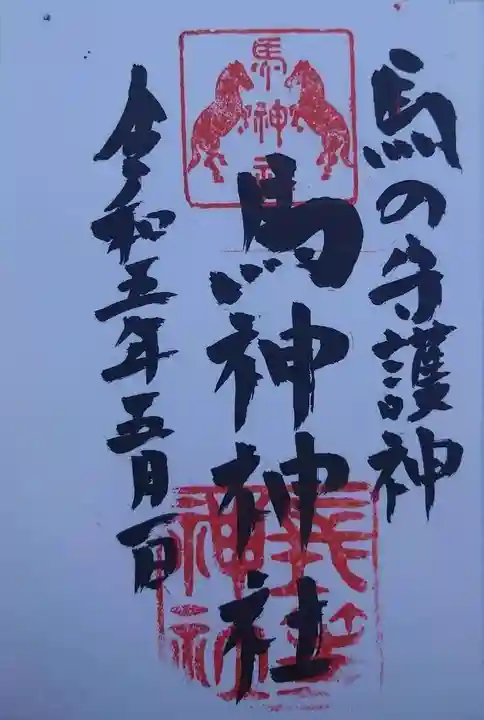 馬の守護神
馬神
馬神神社
令和五年五月一日
神社